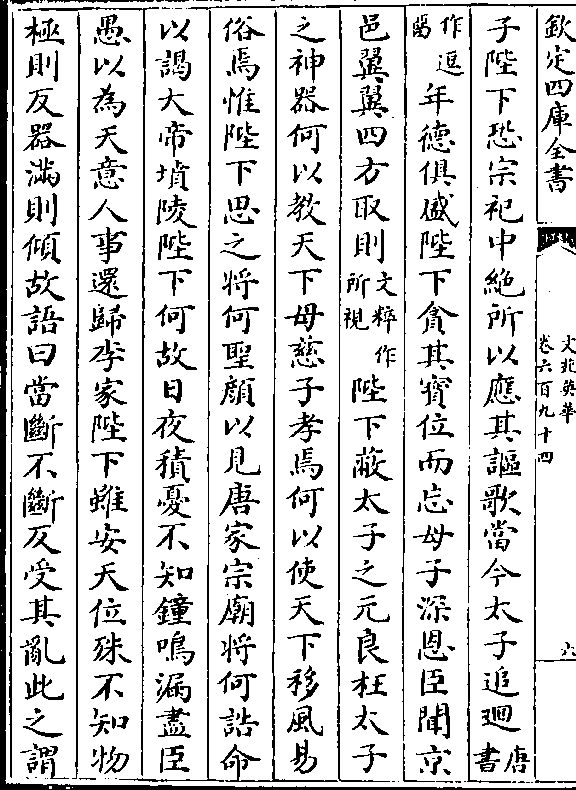 欽定四庫全書
文苑英華
卷六百九十四
六
子陛下恐宗祀中絶所以應其謳歌當今太子追廻唐書
作逗留年德俱盛陛下貪其寳位而忘母子深恩臣聞京
邑翼翼四方取則文粹作所視陛下蔽太子之元良枉太子
之神器何以教天下母慈子孝焉何以使天下移風易
俗焉惟陛下思之將何聖顔以見唐家宗廟將何誥命
以謁大帝墳陵陛下何故日夜積憂不知鐘鳴漏盡臣
愚以為天意人事還歸李家陛下雖安天位殊不知物
極則反器滿則傾故語曰當斷不斷反受其亂此之謂